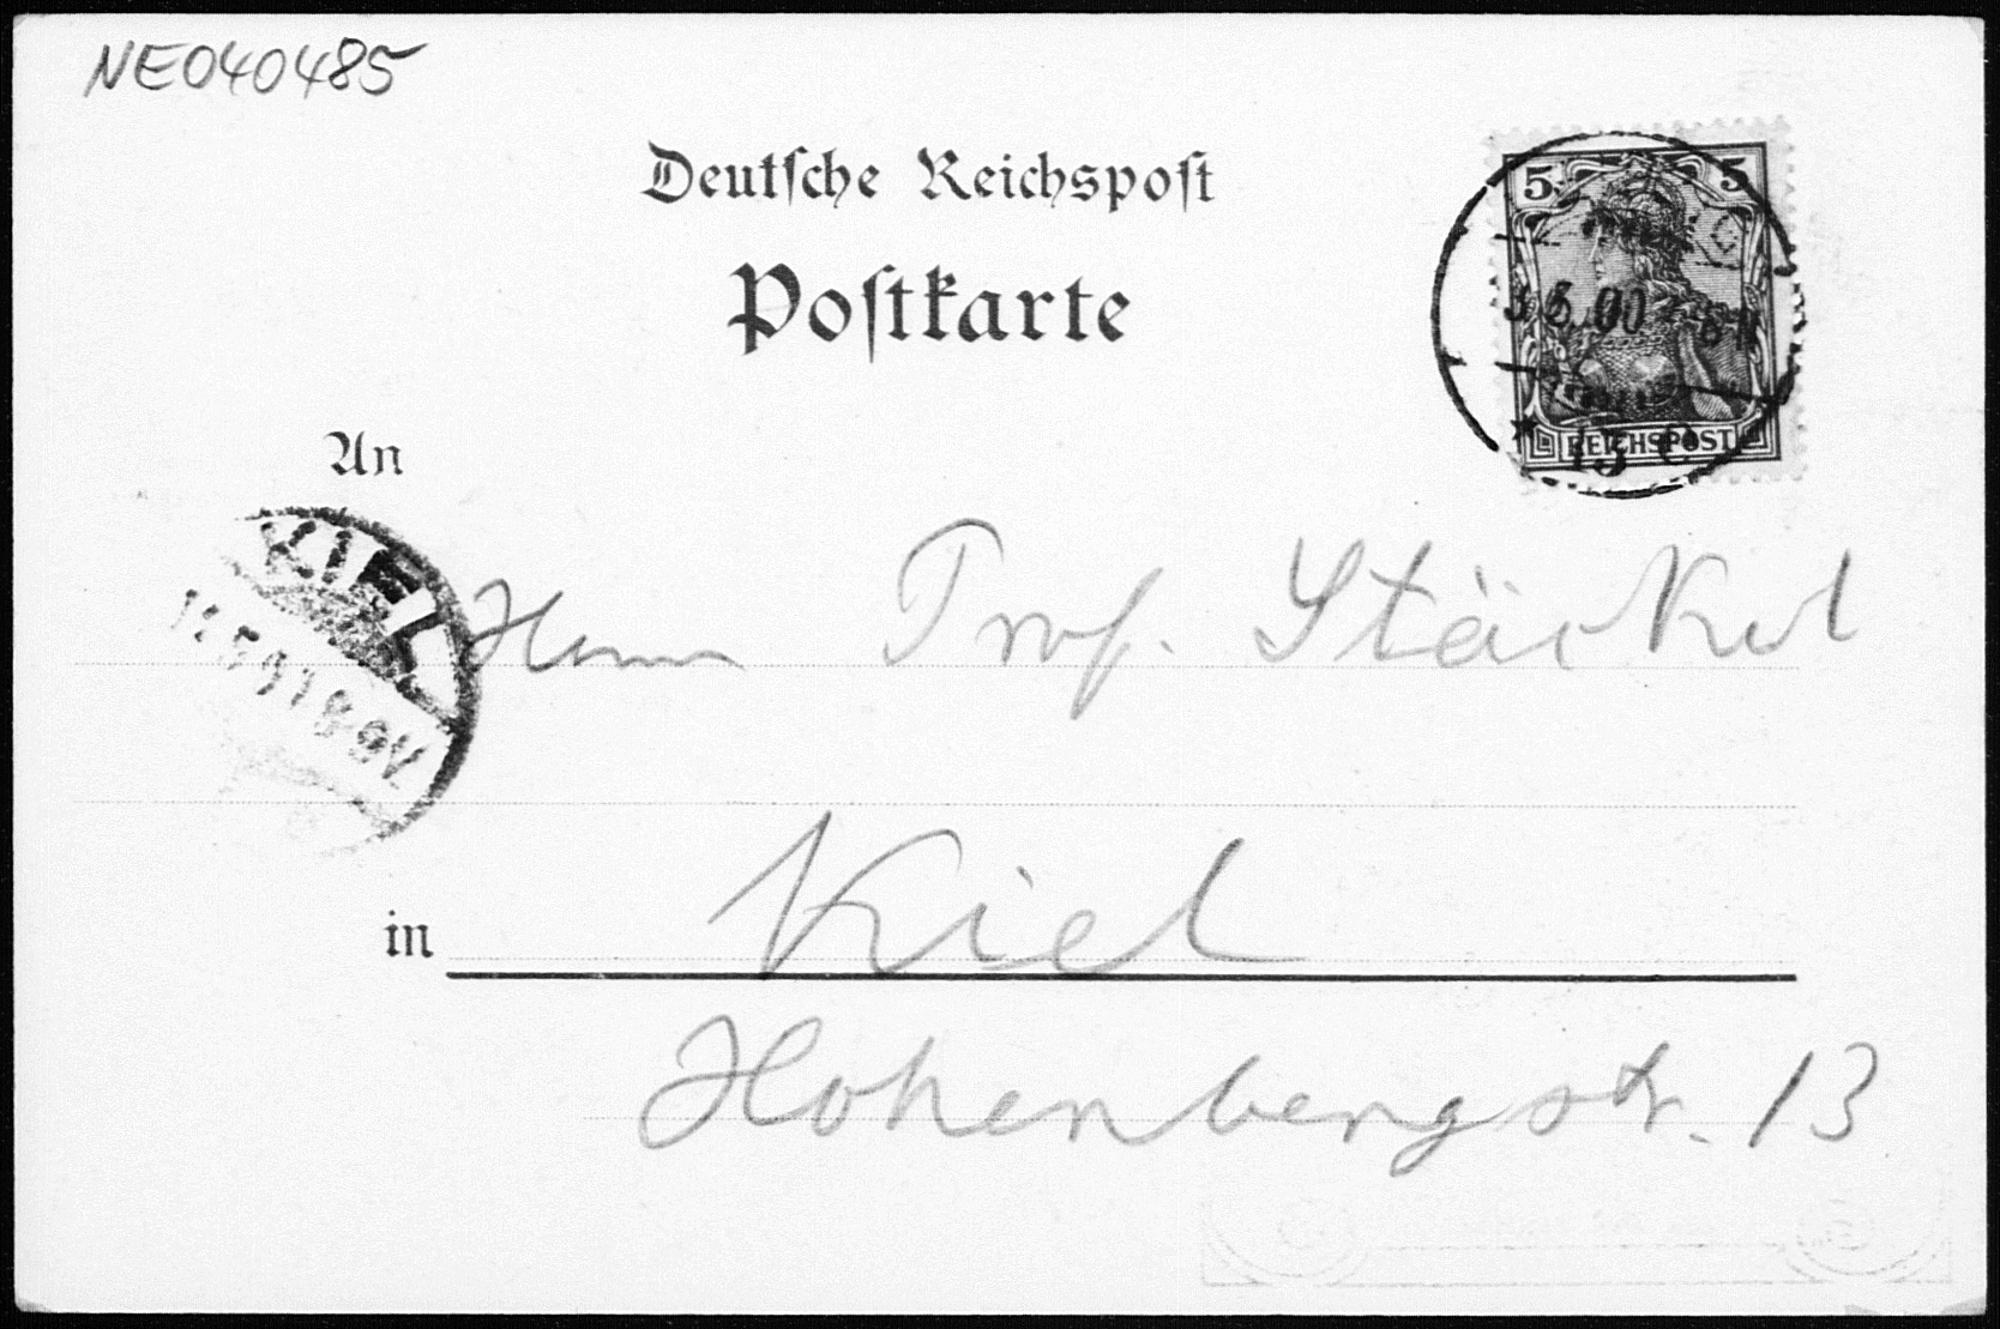 NE040485
Deutſche Reichspoſt
Poſtkarte
5 5
REICHSPOST
An
KIEL
Herrn Prof. Stäckel
in Kiel
Hohenbergstr. 13